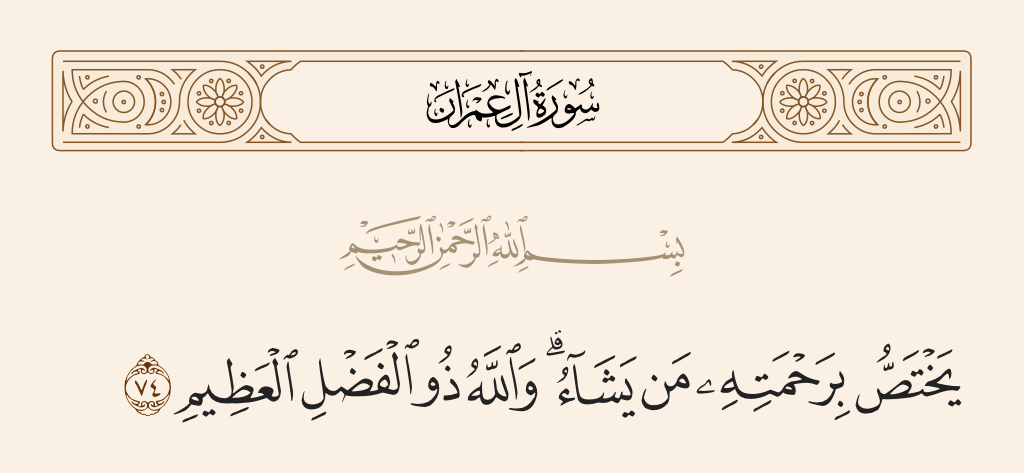 سُورَةُ آلِ عِمْرَان
بِسْمِ ٱللَّهِ ٱلرَّحْمَٰنِ ٱلرَّحِيمِ
يَخْتَصُّ بِرَحْمَتِهِۦ مَن يَشَآءُ ۗ وَٱللَّهُ ذُو ٱلْفَضْلِ ٱلْعَظِيمِ ٧٤